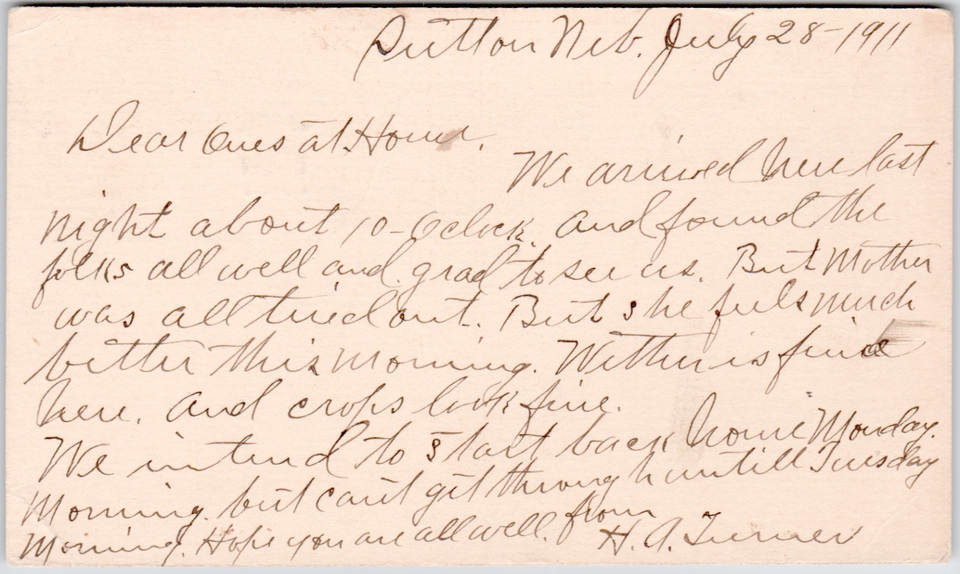 Sutton Neb. July 28-1911
Dear Ones at Home.
We arrived here last
night about 10-Oclock. and found the
folks all well and grad to see us. But Mother
was all tired out. But she feels much
better this morning. Wether is fine
here. and crops look fine.
We intend to start back home Monday.
Morning. but cant get through untill Tuesday
Morning. Hope you are all well. from
H. A. Turner